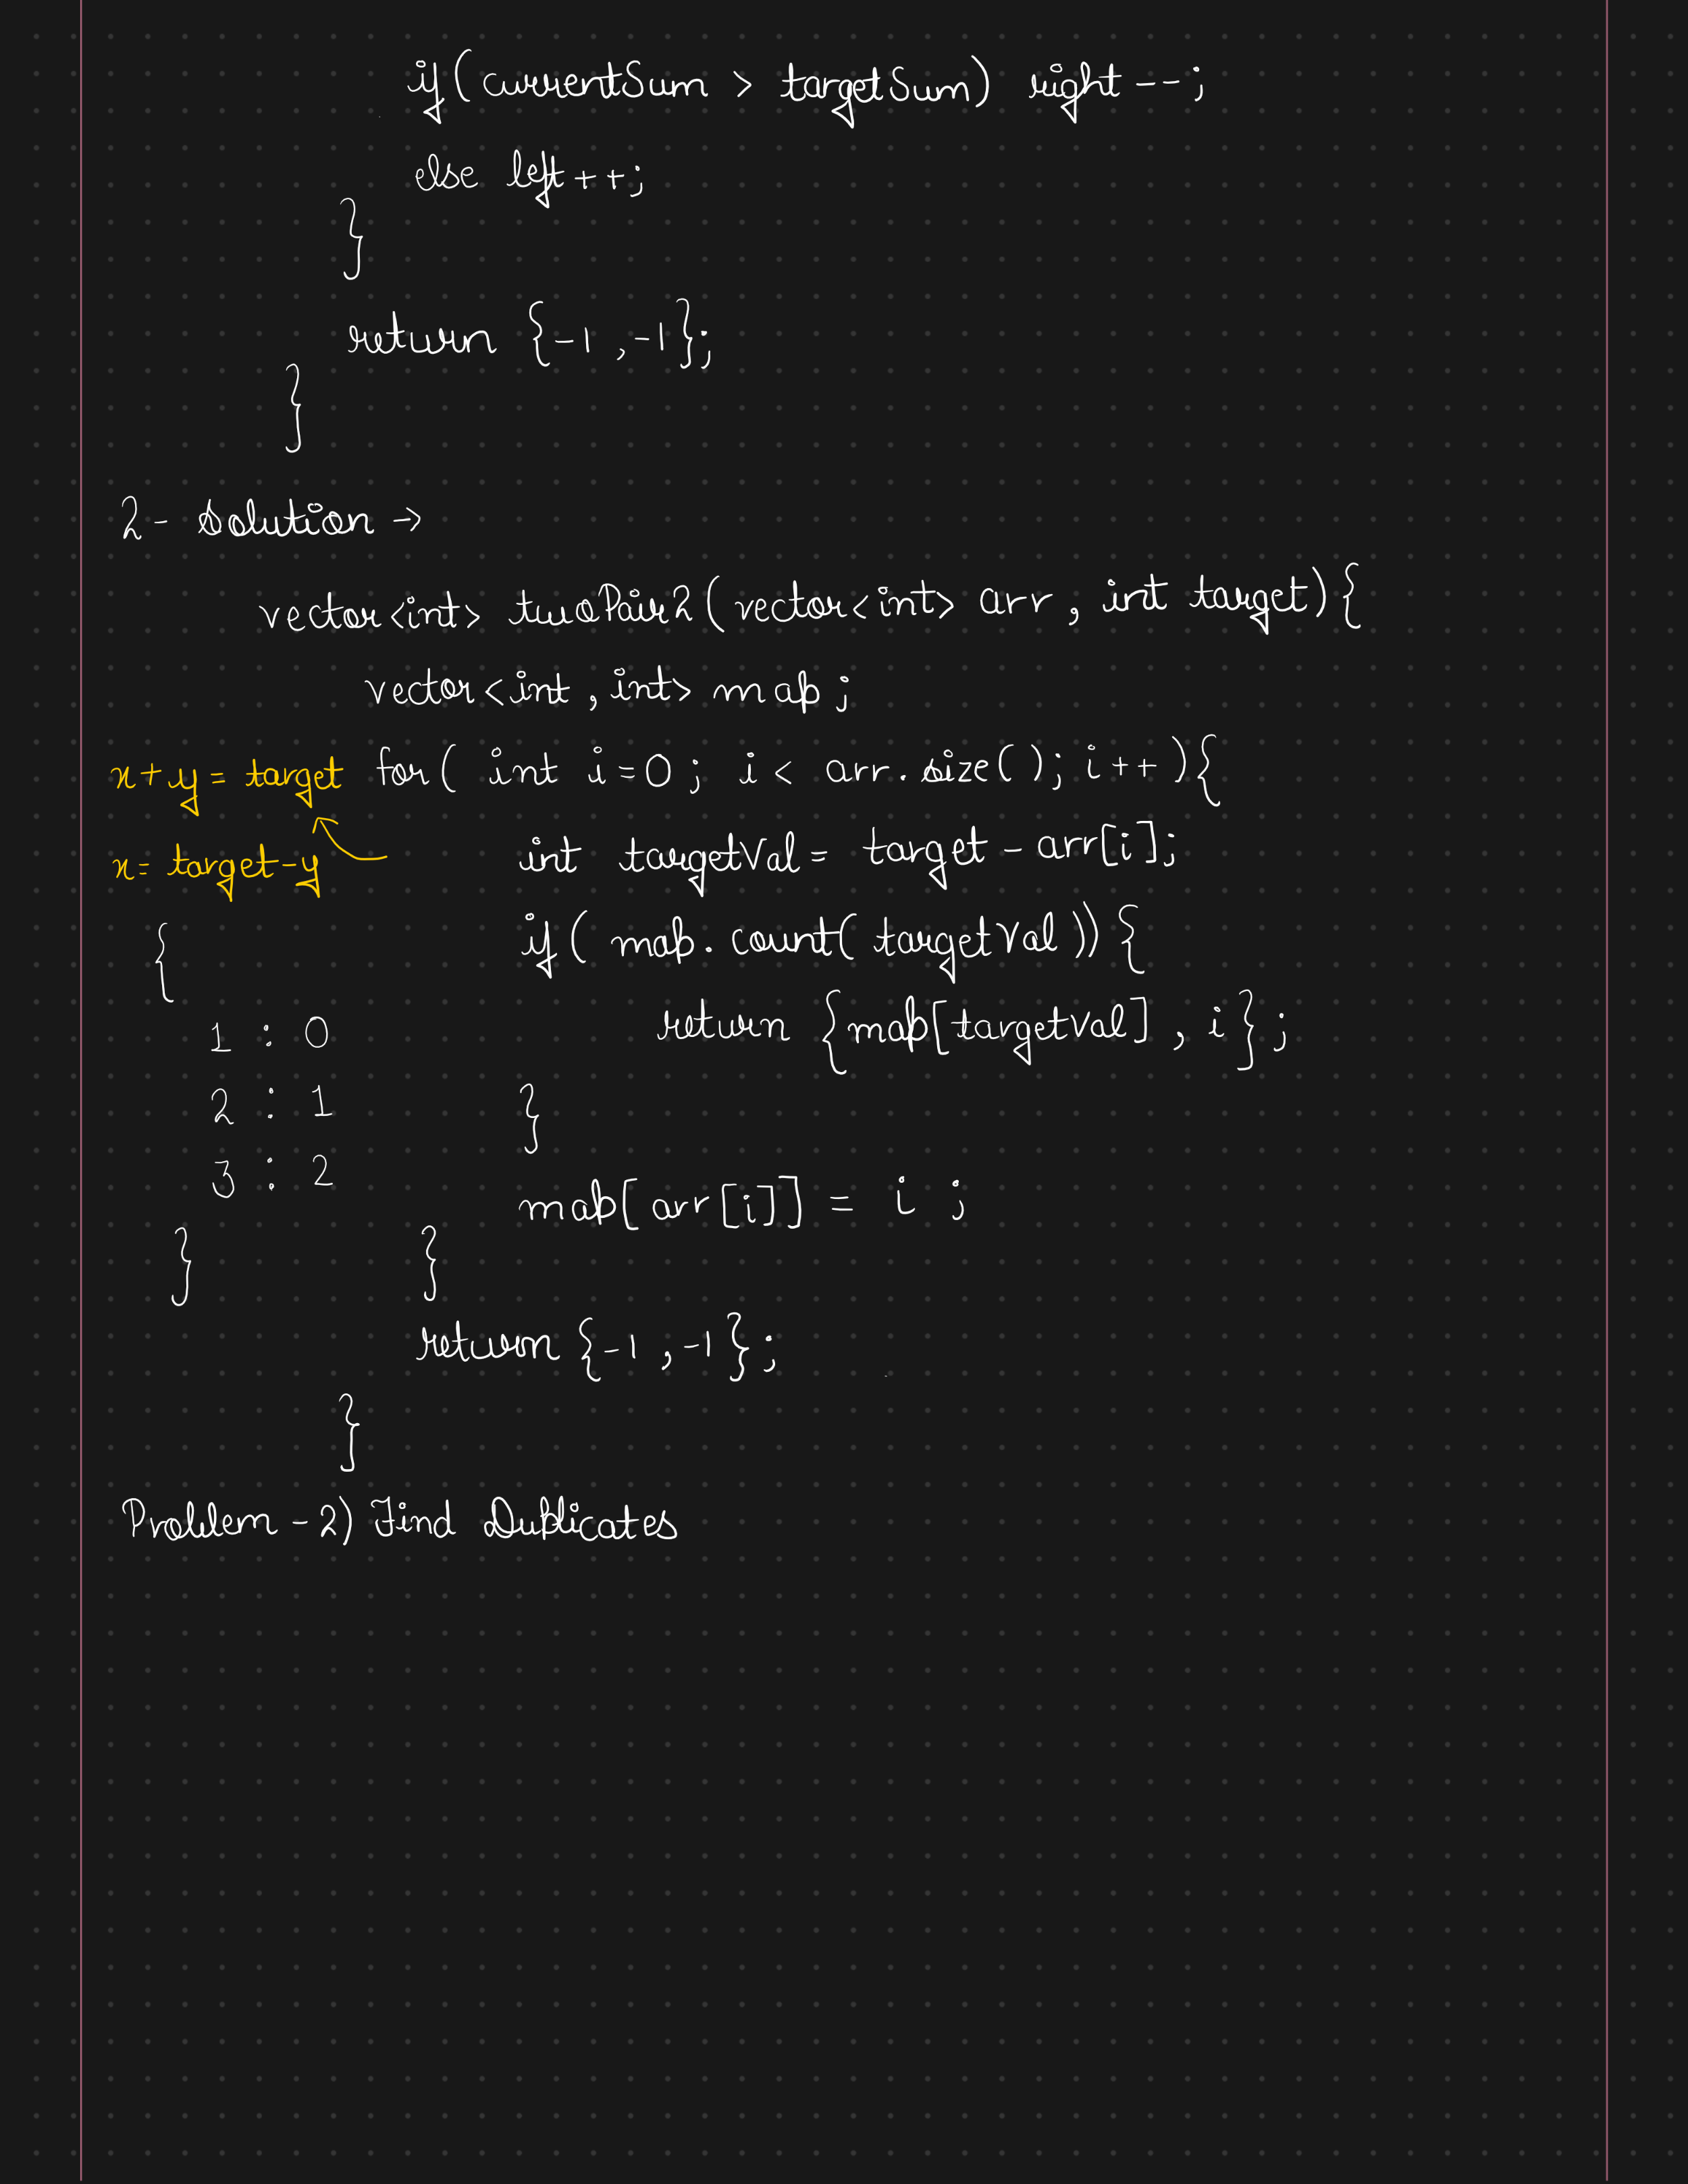 if(currentSum > targetSum) right--;
else left++;
}
return {-1,-1};
}
2- Solution ->
vector<int> twoPair2(vector<int> arr, int target){
vector<int, int> map;
x+y = target for( int i=0; i < arr.size(); i++ ){
x = target-y int targetVal = target - arr[i];
{ if( map.count( targetVal )){
1 : 0 return {map[targetVal], i};
2 : 1 }
3 : 2 map[arr[i]] = i ;
} }
return {-1,-1};
}
Problem -2) Find Duplicates